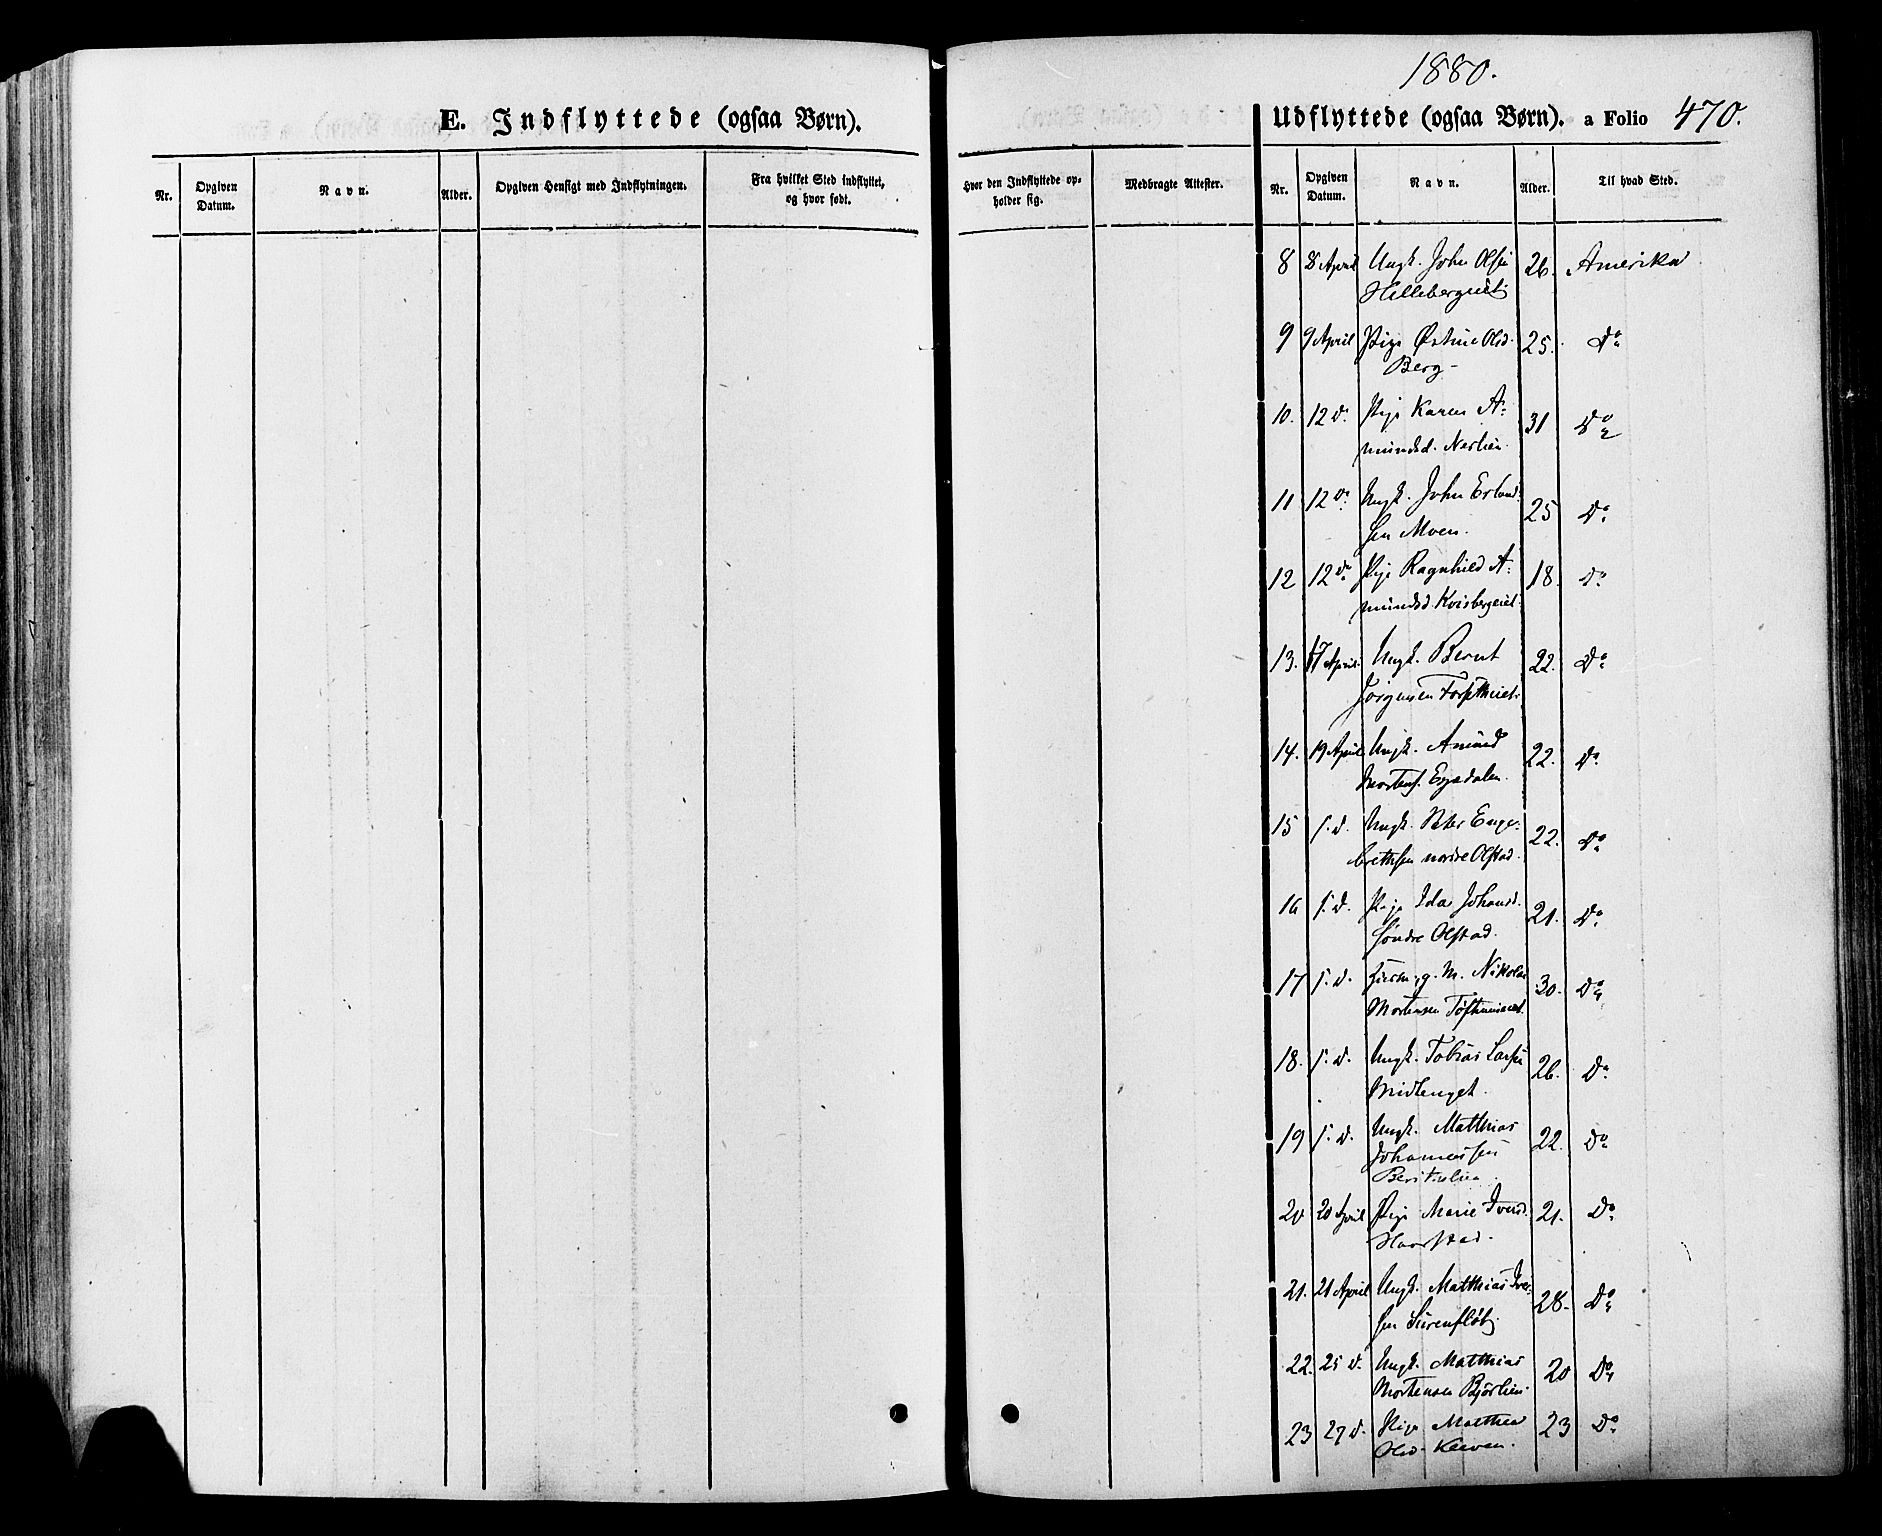 1880.
E. Indflyttede (ogsaa Børn).
Udflyttede (ogsaa Børn). a Folio 470.
Nr. Opgiven Datum. Navn. Alder. Opgiven Hensigt med Indflytningen. Fra hvilket Sted indflyttet, og hvor født.
Hvor den Indflyttede opholder sig. Medbragte Attester. Nr. Opgiven Datum. Navn. Alder. Til hvad Sted.
8 8 April Ungk. John Olsen 26. Amerika
Hillebergeiet
9 9 April Pige Østine Olsd. 25. Do
Berg
10. 12 do Pige Karen A- 31 Do
mundsd. Nerlien
11 12 do Ungk. John Erland- 25 Do
sen Moen.
12 12 do Pige Ragnhild A- 18. Do
mundsd. Kvisbergeiet
13. 17 April Ungk. Bernt 22. Do
Jørgensen
14. 19 April Ungk. Amund 22. Do
Mortens.
15 s. d. Ungk. Peter Enge- 22. Do
brethsen nordre Olstad.
16 s. d. Pige Ida Johansd. 21. Do
søndre Olstad.
17 s. d. Husm. g. M. Nikolai 30. Do
Mortensen
18. s. d. Ungk. Tobias Larsen 26. Do
Midtenget.
19 s. d. Ungk. Matthias 22. Do
Johannessen
20 20 April Pige Marie Iversd. 21. Do
Haarstad.
21. 21 April Ungk. Matthias Iver- 28. Do
sen Surenfløt
22. 25 d. Ungk. Matthias 20 Do
Mortensen Bjørlien.
23 27 d. Pige Matthea 23 Do
Olsd.